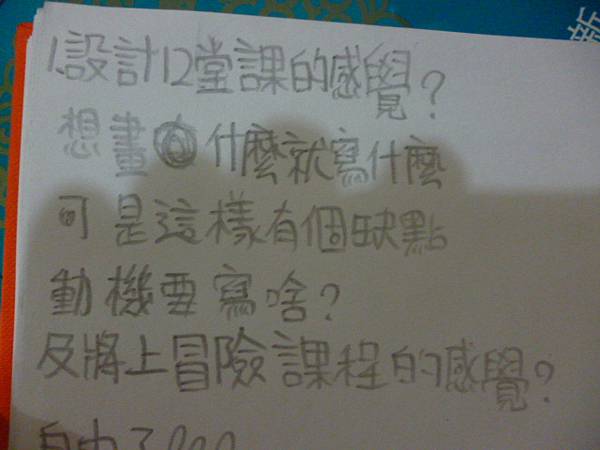 1.設計12堂課的感覺？
想畫什麼就寫什麼
可是這樣有個缺點
動機要寫啥？
及將上冒險課程的感覺？
自由了
新